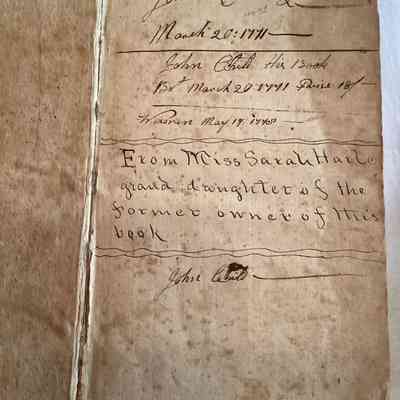 March 20: 1771
John Child His Book
Bt March 20 1771 Price 18/
Warren May 19, 1778
From Miss Sarah Haile
grand daughter of the
former owner of this
book
John Child